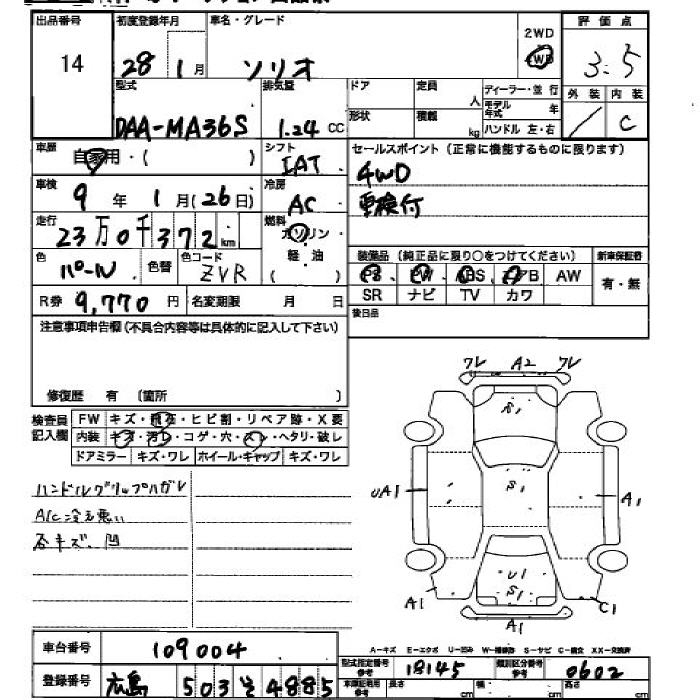 出品番号 初度登録年月 車名・グレード 評価点
14 28 1月 ソリオ 2WD 4WD 3.5
型式 排気量 ドア 定員 人 ディーラー・並行 外装 内装
形状 積載 kg モデル年式 年
DAA-MA36S 1.24 CC ハンドル 左・右 C
車歴 自家用・( ) シフト IAT セールスポイント (正常に機能するものに限ります)
4WD
車検 9年 1月(26日) 冷房 AC 車検付
走行 23万0千372km 燃料 ガソリン・軽油 ( )
色 パール 色替 色コード ZVR 装備品 (純正品に限り○をつけてください) 新車保証書
PS PW ABS エアB AW 有・無
R券 9,770円 名変期限 月 日 SR ナビ TV カワ
後日品
注意事項申告欄 (不具合内容等は具体的に記入して下さい)
修復歴 有 (箇所 )
検査員記入欄 FW キズ・飛石・ヒビ割・リペア跡・X要
内装 キズ・汚レ・コゲ・穴・スレ・ヘタリ・破レ
ドアミラー キズ・ワレ ホイール・キャップ キズ・ワレ
ハンドルグリップハガレ
A/C冷え悪い
各キズ、凹
ワレ A2 ワレ
S1
UA1 S1 A1
U1
S1
A1 A1 C1
車台番号 109004
A-キズ E-エクボ U-凹み W-補修跡 S-サビ C-腐食 XX-交換済
型式指定番号 参考 18145 類別区分番号 参考 0602
登録番号 広島 503 4885
長さ cm 幅 cm 高さ cm